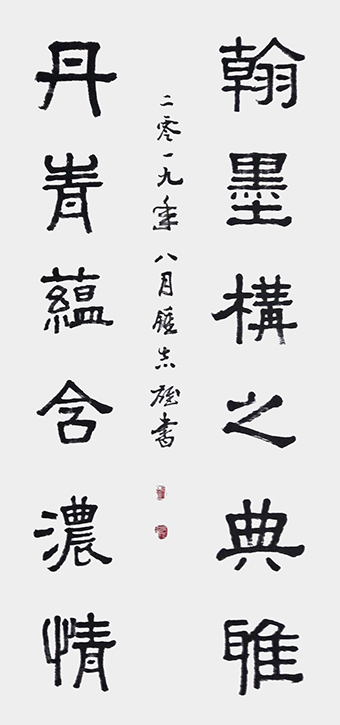 翰墨構之典雅
二零一九年八月志雄書
丹青蘊含濃情